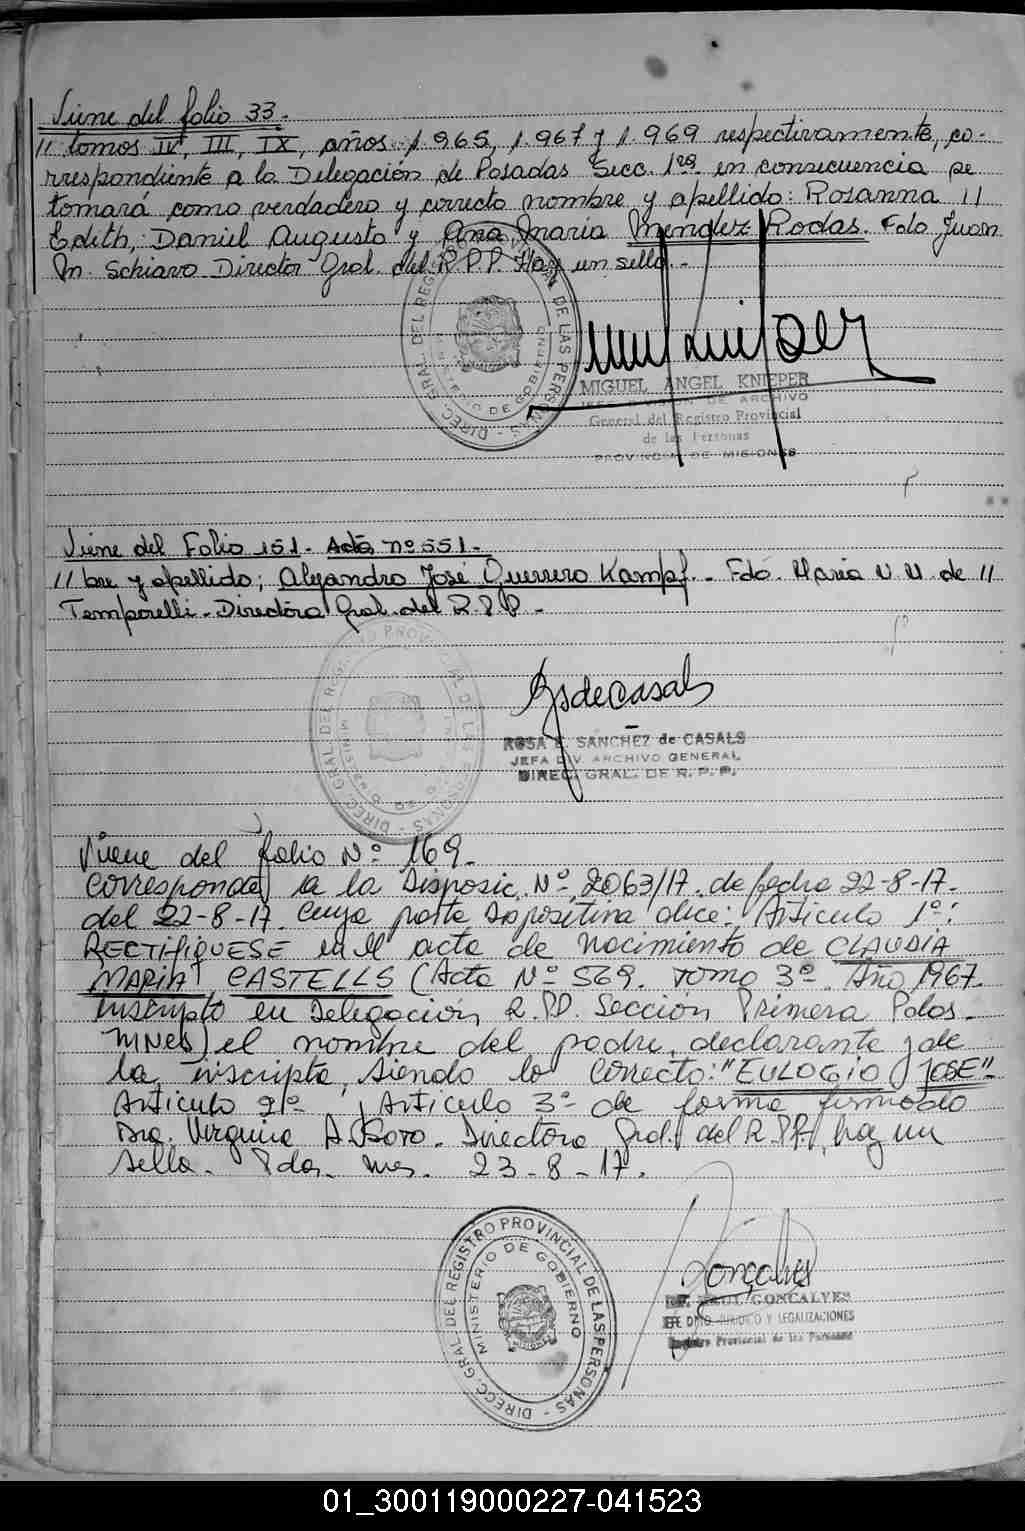 Viene del folio 33.-
// tomos IV, III, IX, años: 1.965, 1.967 y 1.969 respectivamente, co-
rrespondiente a la Delegación de Posadas Secc. 1ra en consecuencia se
tomará como verdadero y correcto nombre y apellido: Rosanna //
Edith, Daniel Augusto y Ana María Mendez Rodas. Fdo Juan
M. Schiavo Director Gral. del R.P.P. Hay un sello.-
DIREC. GRAL. DEL REGISTRO PROVINCIAL DE LAS PERSONAS
MINISTERIO DE GOBIERNO
MIGUEL ANGEL KNIEPER
JEFE DIVISION DE ARCHIVO
General del Registro Provincial
de las Personas
PROVINCIA DE MISIONES
Viene del Folio 151.- Acta nº 551.-
// bre y apellido; Alejandro José Guerrero Kampf.- Fdo. Maria U. de //
Temporelli.- Directora Gral. del R.P.P.-
DIREC. GRAL. DEL REGISTRO PROVINCIAL DE LAS PERSONAS
RSdeCasals
ROSA E. SANCHEZ de CASALS
JEFA DIV. ARCHIVO GENERAL
DIREC. GRAL. DE R. P. P.
Viene del folio Nº 169.-
Corresponde a la Disposic. Nº 2063/17. de fecha 22-8-17.-
del 22-8-17. Cuya parte dispositiva dice: Articulo 1º:
RECTIFIQUESE en el acta de nacimiento de CLAUDIA
MARIA CASTELLS (Acta Nº 569. Tomo 3º. Año 1967.
Inscripto en Delegación R.PP. Sección Primera Posas.
MNES) el nombre del padre, declarante y de
la inscripta, siendo lo correcto: "EULOGIO JOSE"-
Articulo 2º Articulo 3º de forma firmado
Dra. Virginia A. Soto. Directora Gral. del R.PP. hay un
sello. Pdas. Mnes. 23-8-17.
DIRECC. GRAL. DEL REGISTRO PROVINCIAL DE LAS PERSONAS
MINISTERIO DE GOBIERNO
Gonçalves
RAUL GONCALVES
JEFE DPTO JURIDICO Y LEGALIZACIONES
Registro Provincial de las Personas
01_300119000227-041523